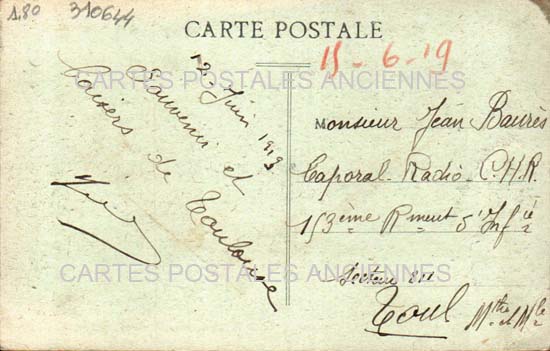 1.80 310644
CARTE POSTALE
15-6-19
CARTES POSTALES ANCIENNES
12 Juin 1919
Souvenir et
Baisers de Toulouse
Monsieur Jean Baurès
Caporal Radio C.H.R.
153ème R^ment d'Inf^ie
Secteur
Toul M^the et M^lle
CARTES POSTALES ANCIENNES